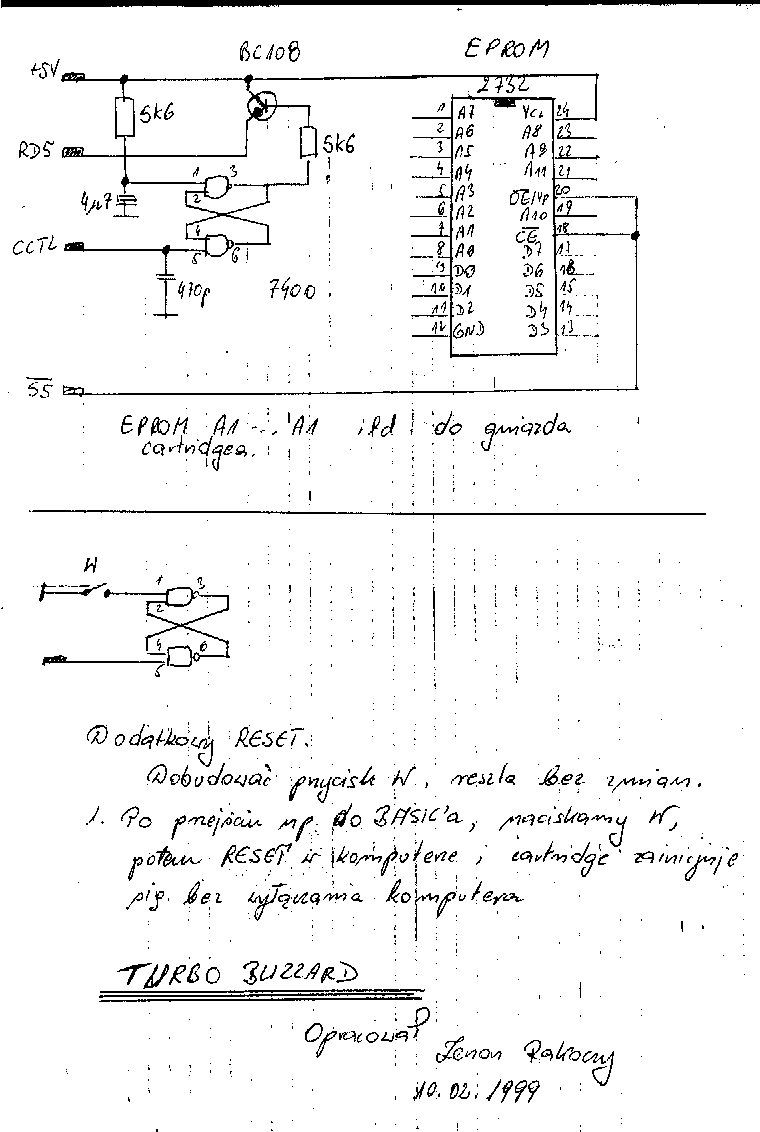 BC108
EPROM
+5V
2732
5k6
RD5
5k6
1 3
2
4µ7
4
CCTL
5 6
470p
7400
1 A7 Vcc 24
2 A6 A8 23
3 A5 A9 22
4 A4 A11 21
5 A3 OE/Vp 20
6 A2 A10 19
7 A1 CE 18
8 A0 D7 17
9 D0 D6 16
10 D1 D5 15
11 D2 D4 14
12 GND D3 13
S5
EPROM A1 ... A1 itd do gniazda
cartridgea.
W
1 3
2
4 6
5
Dodatkowy RESET.
Dobudować przycisk W, reszta bez zmian.
1. Po przejściu np. do BASIC'a, naciskamy W,
potem RESET w komputerze, cartridge zainicjuje
się bez wyłączania komputera
TURBO BLIZZARD
Opracował
Zenon Rakoczy
10.02.1999